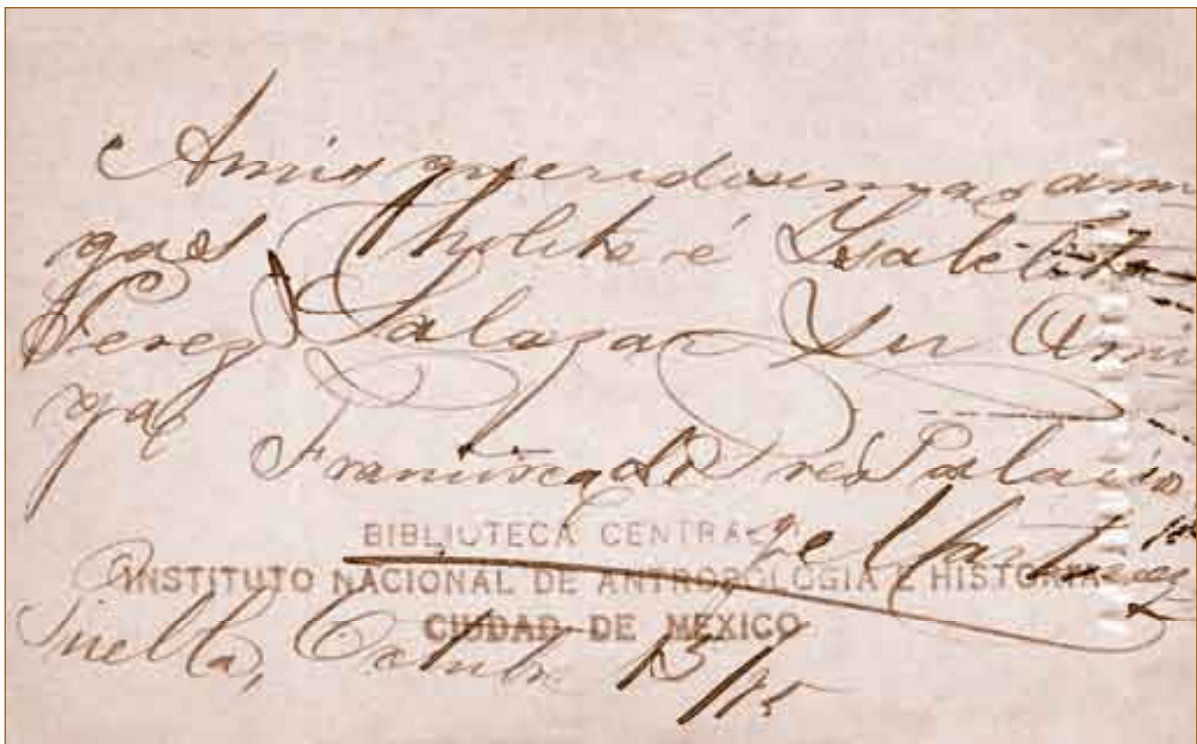 A mis queridisimas ami
gas Cholita é Ysabelita
Perez Salazar Su Ami
ga
Francisca de P. Palacios
de Martinez
BIBLIOTECA CENTRAL
INSTITUTO NACIONAL DE ANTROPOLOGIA E HISTORIA
CIUDAD DE MEXICO
Puebla, Octubre 13/95